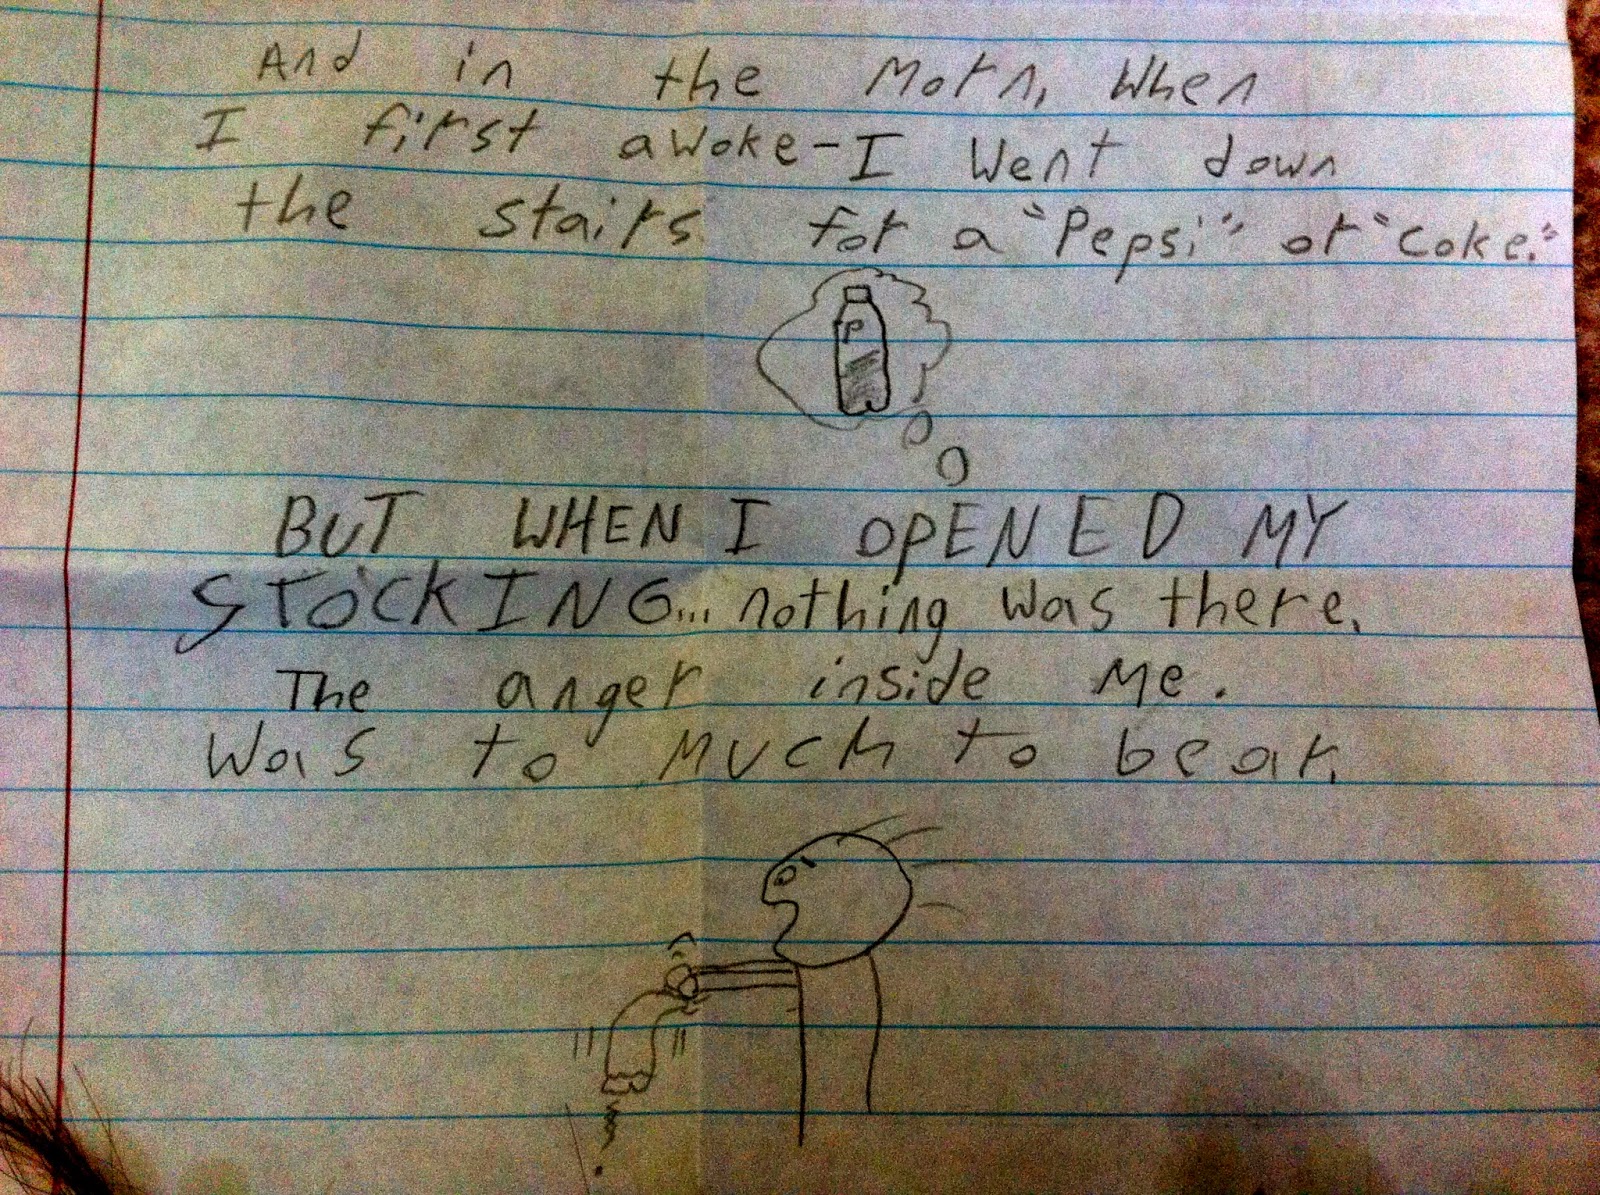 And in the Morn, When
I first awoke-I Went down
the stairs for a "Pepsi" or "Coke."
P
BUT WHEN I OPENED MY
STOCKING... nothing was there.
The anger inside Me.
Was to Much to bear.